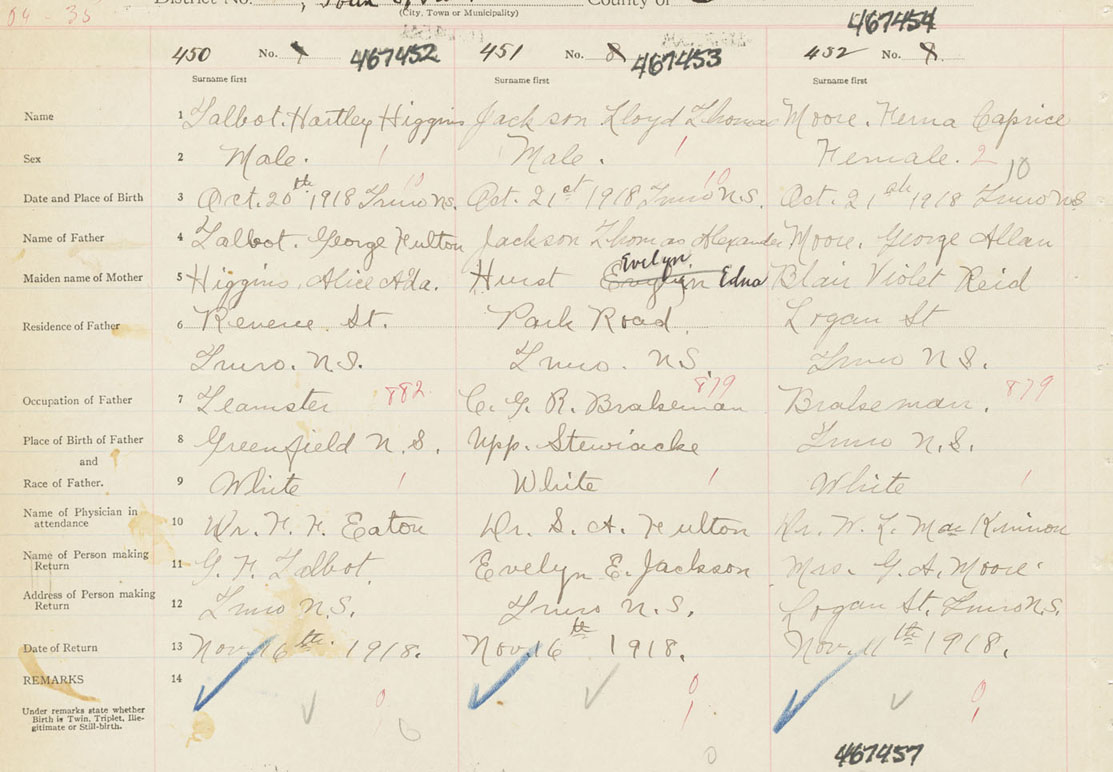 04 - 35
District No. County of
(City, Town or Municipality)
467454
450 No. 467452 451 No. 8 467453 452 No. 9
Surname first Surname first Surname first
Name 1 Talbot. Hartley Higgins Jackson Lloyd Thomas Moore. Ferna Caprice
Sex 2 Male. 1 Male. 1 Female. 2
10 10 10
Date and Place of Birth 3 Oct. 20th 1918 Truro N.S. Oct. 21st 1918 Truro N.S. Oct. 21st 1918 Truro N.S.
Name of Father 4 Talbot. George Fulton Jackson Thomas Alexander Moore. George Allan
Maiden name of Mother 5 Higgins, Alice Ada. Hurst Evelyn Edna Blair Violet Reid
Residence of Father 6 Revere St. Park Road. Logan St
Truro. N.S. Truro. N.S. Truro N.S.
882 879 879
Occupation of Father 7 Teamster C. G. R. Brakeman Brakeman.
Place of Birth of Father 8 Greenfield N.S. Upp. Stewiacke Truro N.S.
and
Race of Father. 9 White 1 White 1 White 1
Name of Physician in attendance 10 Dr. F. F. Eaton Dr. S. A. Fulton Dr. W. L. MacKinnon
Name of Person making Return 11 G. F. Talbot. Evelyn E. Jackson Mrs. G. A. Moore
Address of Person making Return 12 Truro N.S. Truro N.S. Logan St. Truro N.S.
Date of Return 13 Nov. 16th 1918. Nov. 16th 1918. Nov. 11th 1918.
REMARKS 14
0 0 0
Under remarks state whether
Birth is Twin, Triplet, Ille-
gitimate or Still-birth.
1 1 1
0
467457